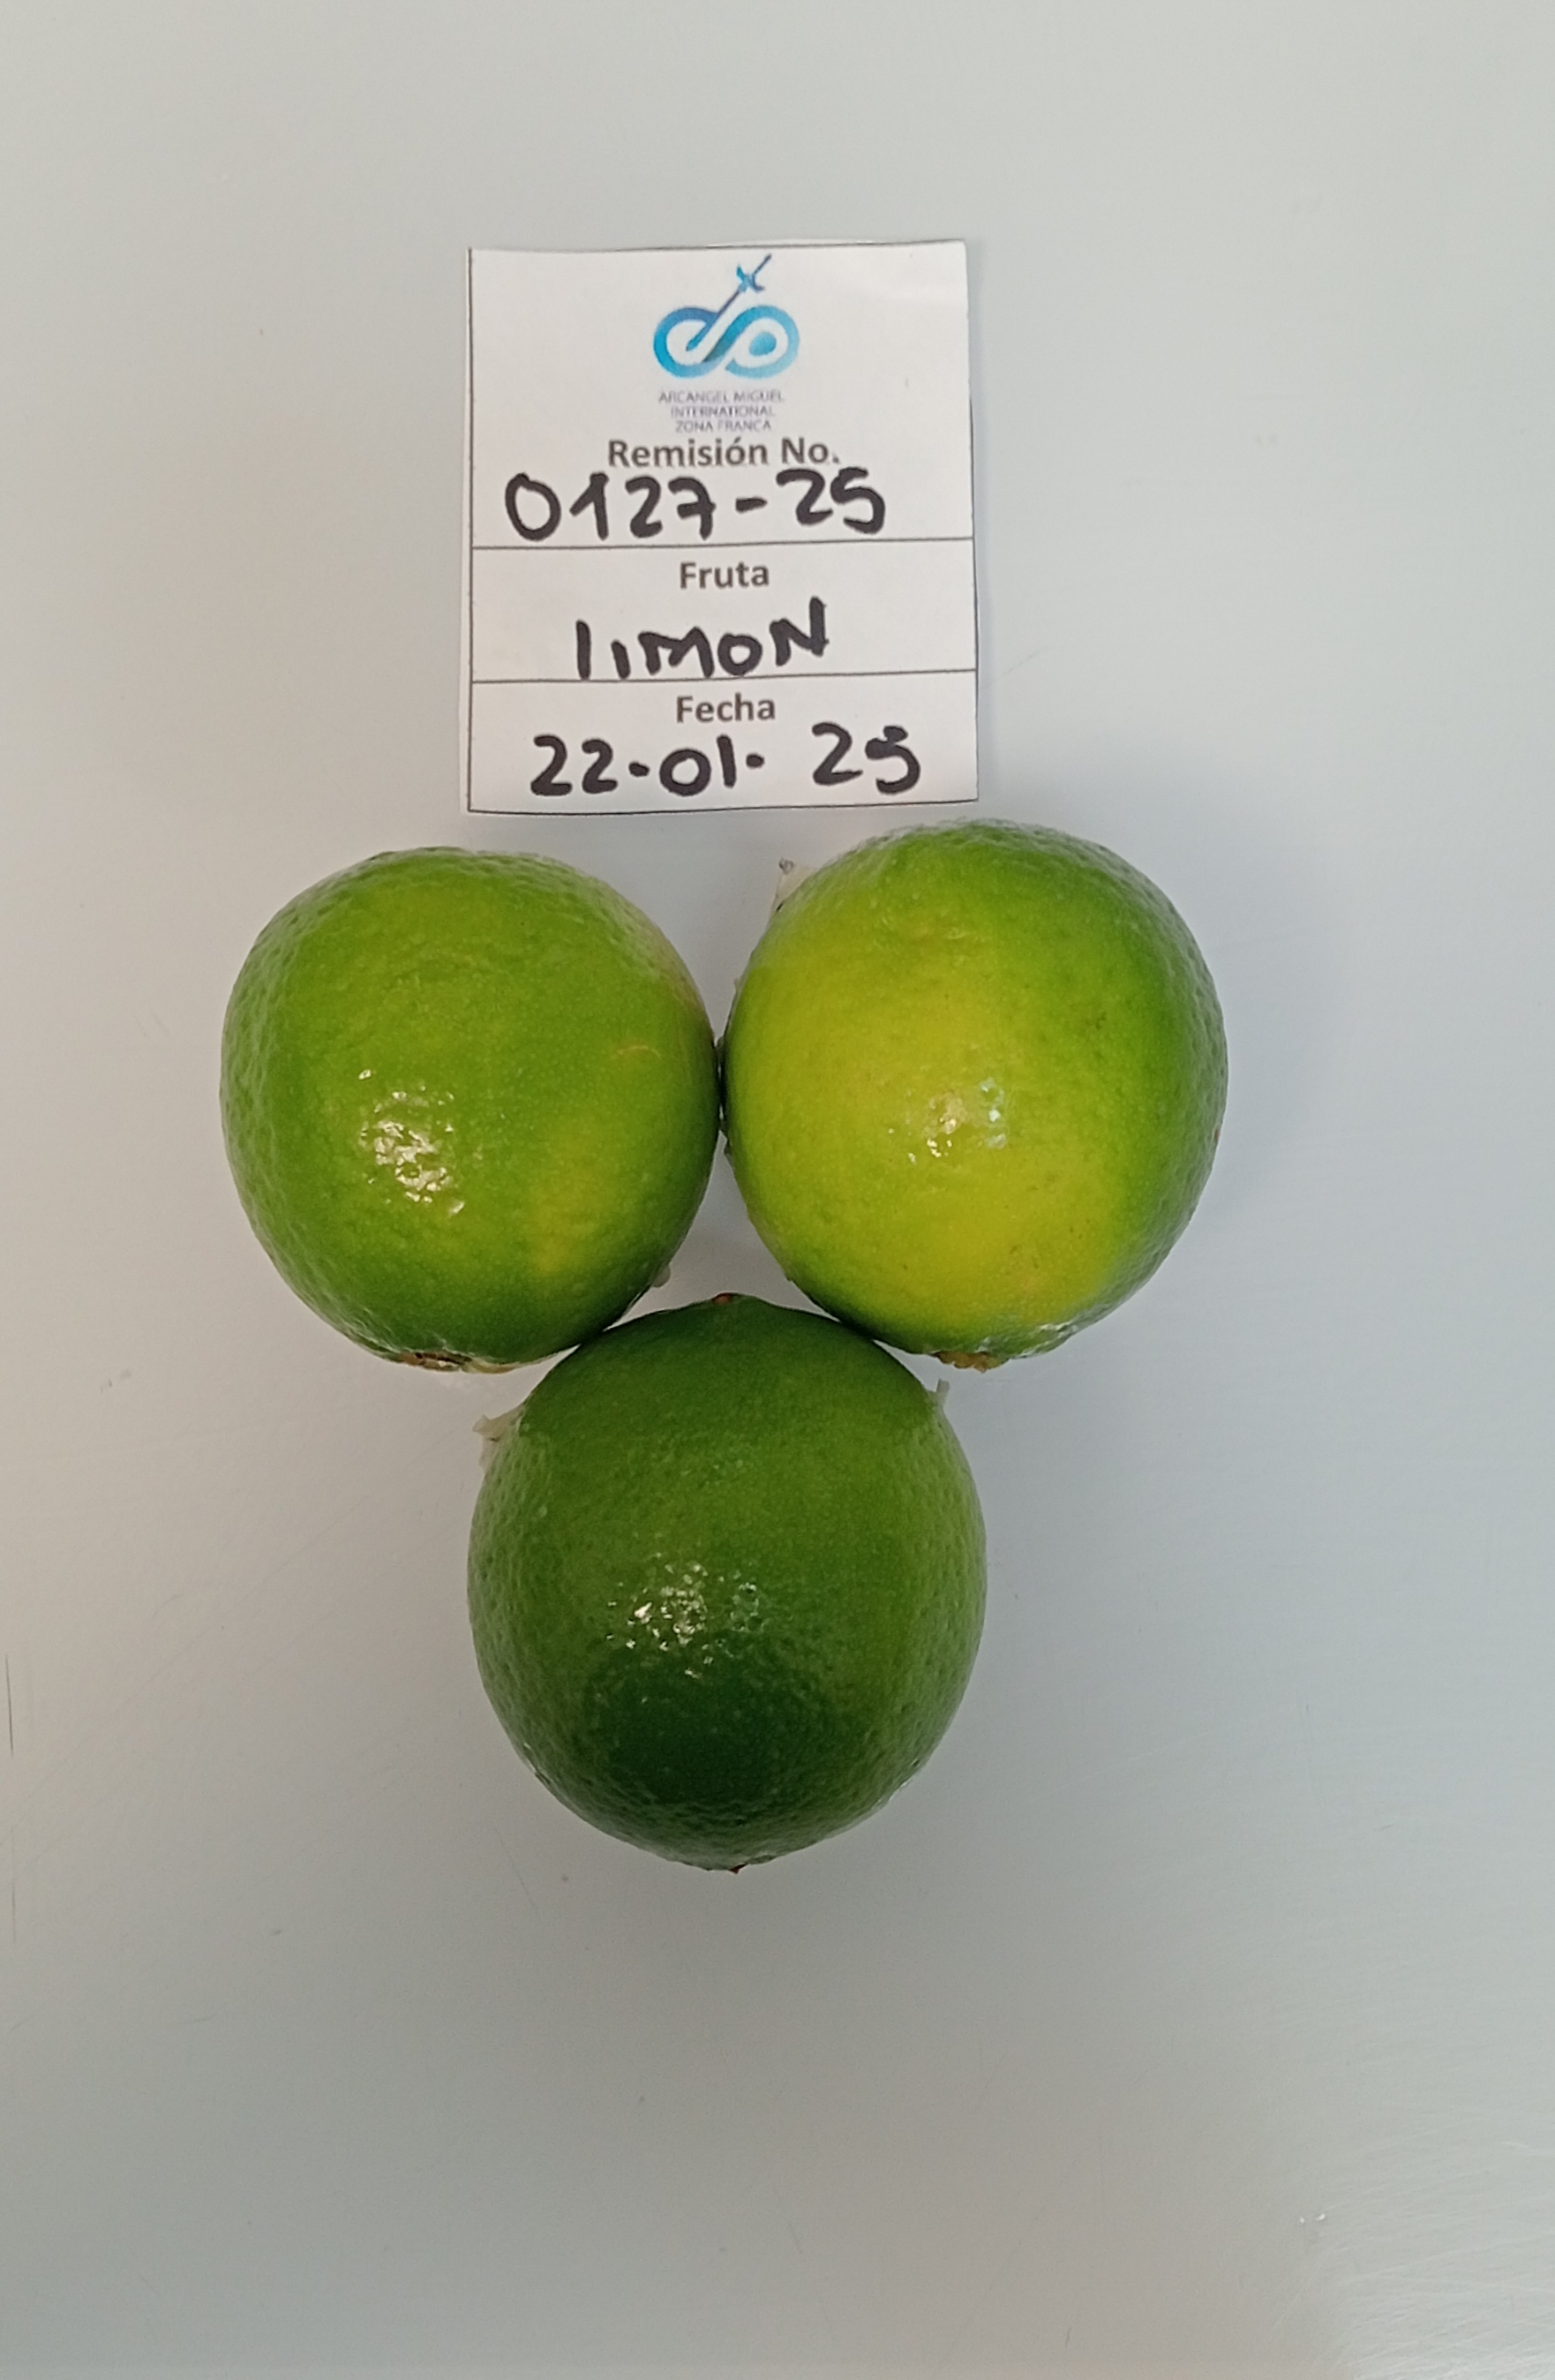 ARCANGEL MIGUEL
INTERNATIONAL
ZONA FRANCA
Remisión No.
0127-25
Fruta
lIMON
Fecha
22.01. 25